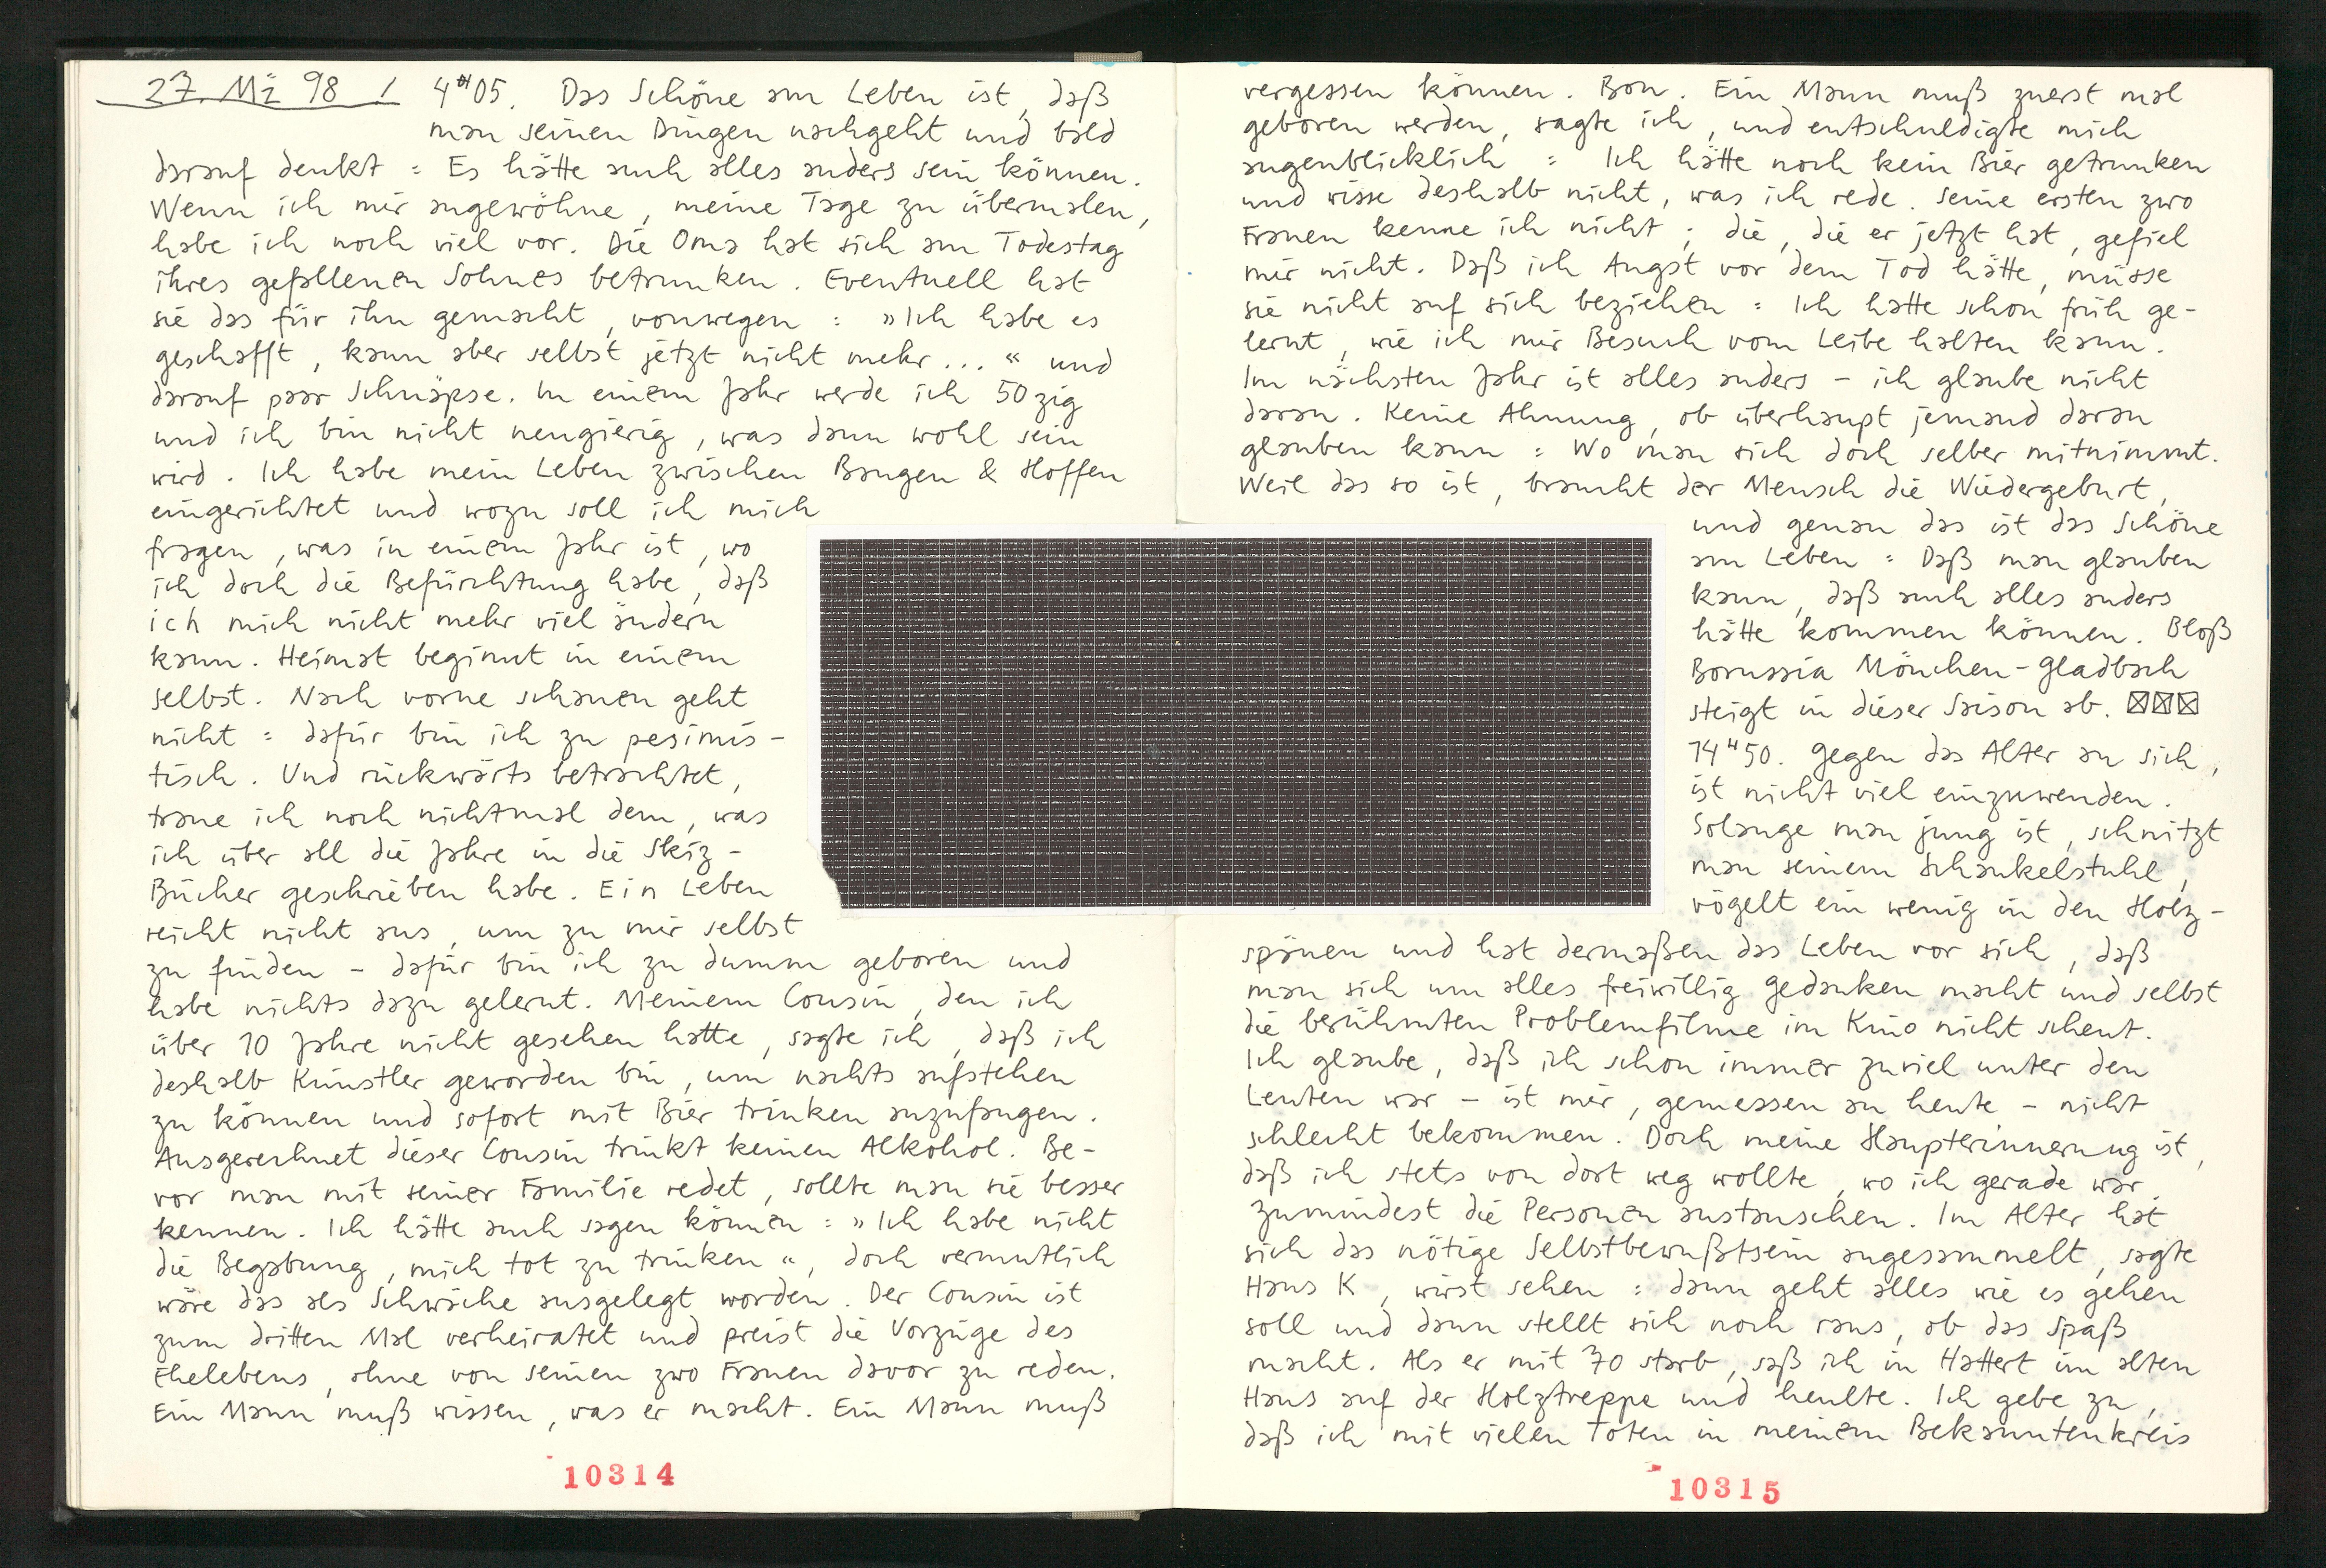 27. Mä 98 / 4H05. Das Schöne am Leben ist, daß
man seinen Dingen nachgeht und bald
darauf denkt : Es hätte auch alles anders sein können.
Wenn ich mir angewöhne, meine Tage zu übermalen,
habe ich noch viel vor. Die Oma hat sich am Todestag
ihres gefallenen Sohnes betrunken. Eventuell hat
sie das für ihn gemacht, vonwegen : »Ich habe es
geschafft, kann aber selbst jetzt nicht mehr... “ und
darauf paar Schnäpse. In einem Jahr werde ich 50zig
und ich bin nicht neugierig, was dann wohl sein
wird. Ich habe mein Leben zwischen Bangen & Hoffen
eingerichtet und wozu soll ich mich
fragen, was in einem Jahr ist, wo
ich doch die Befürchtung habe, daß
ich mich nicht mehr viel ändern
kann. Heimat beginnt in einem
selbst. Nach vorne schauen geht
nicht : dafür bin ich zu pesimis-
tisch. Und rückwärts betrachtet,
traue ich noch nichtmal dem, was
ich über all die Jahre in die Skiz-
Bücher geschrieben habe. Ein Leben
reicht nicht aus, um zu mir selbst
zu finden – dafür bin ich zu dumm geboren und
habe nichts dazu gelernt. Meinem Cousin, den ich
über 10 Jahre nicht gesehen hatte, sagte ich, daß ich
deshalb Künstler geworden bin, um nachts aufstehen
zu können und sofort mit Bier trinken anzufangen.
Ausgerechnet dieser Cousin trinkt keinen Alkohol. Be-
vor man mit seiner Familie redet, sollte man sie besser
kennen. Ich hätte auch sagen können : »Ich habe nicht
die Begabung, mich tot zu trinken“, doch vermutlich
wäre das als Schwäche ausgelegt worden. Der Cousin ist
zum dritten Mal verheiratet und preist die Vorzüge des
Ehelebens, ohne von seinen zwo Frauen davor zu reden.
Ein Mann muß wissen, was er macht. Ein Mann muß
10314
vergessen können. Bon. Ein Mann muß zuerst mal
geboren werden, sagte ich, und entschuldigte mich
augenblicklich : Ich hätte noch kein Bier getrunken
und wisse deshalb nicht, was ich rede. Seine ersten zwo
Frauen kenne ich nicht ; die, die er jetzt hat, gefiel
mir nicht. Daß ich Angst vor dem Tod hätte, müsse
sie nicht auf sich beziehen : Ich hatte schon früh ge-
lernt, wie ich mir Besuch vom Leibe halten kann.
Im nächsten Jahr ist alles anders – ich glaube nicht
daran. Keine Ahnung, ob überhaupt jemand daran
glauben kann : Wo man sich doch selber mitnimmt.
Weil das so ist, braucht der Mensch die Wiedergeburt,
und genau das ist das Schöne
am Leben : Daß man glauben
kann, daß auch alles anders
hätte kommen können. Bloß
Borussia Mönchen-Gladbach
steigt in dieser Saison ab. ☒☒☒
14H50. Gegen das Alter an sich,
ist nicht viel einzuwenden.
Solange man jung ist, schnitzt
man seinem Schaukelstuhl,
vögelt ein wenig in den Holz-
spänen und hat dermaßen das Leben vor sich, daß
man sich um alles freiwillig Gedanken macht und selbst
die berühmten Problemfilme im Kino nicht scheut.
Ich glaube, daß ich schon immer zuviel unter den
Leuten war – ist mir, gemessen an heute – nicht
schlecht bekommen. Doch meine Haupterinnerung ist,
daß ich stets von dort weg wollte, wo ich gerade war,
zumindest die Personen austauschen. Im Alter hat
sich das nötige Selbstbewußtsein angesammelt, sagte
Hans K, wirst sehen : dann geht alles wie es gehen
soll und dann stellt sich noch raus, ob das Spaß
macht. Als er mit 70 starb, saß ich in Hattert im alten
Haus auf der Holztreppe und heulte. Ich gebe zu,
daß ich mit vielen Toten in meinem Bekanntenkreis
10315